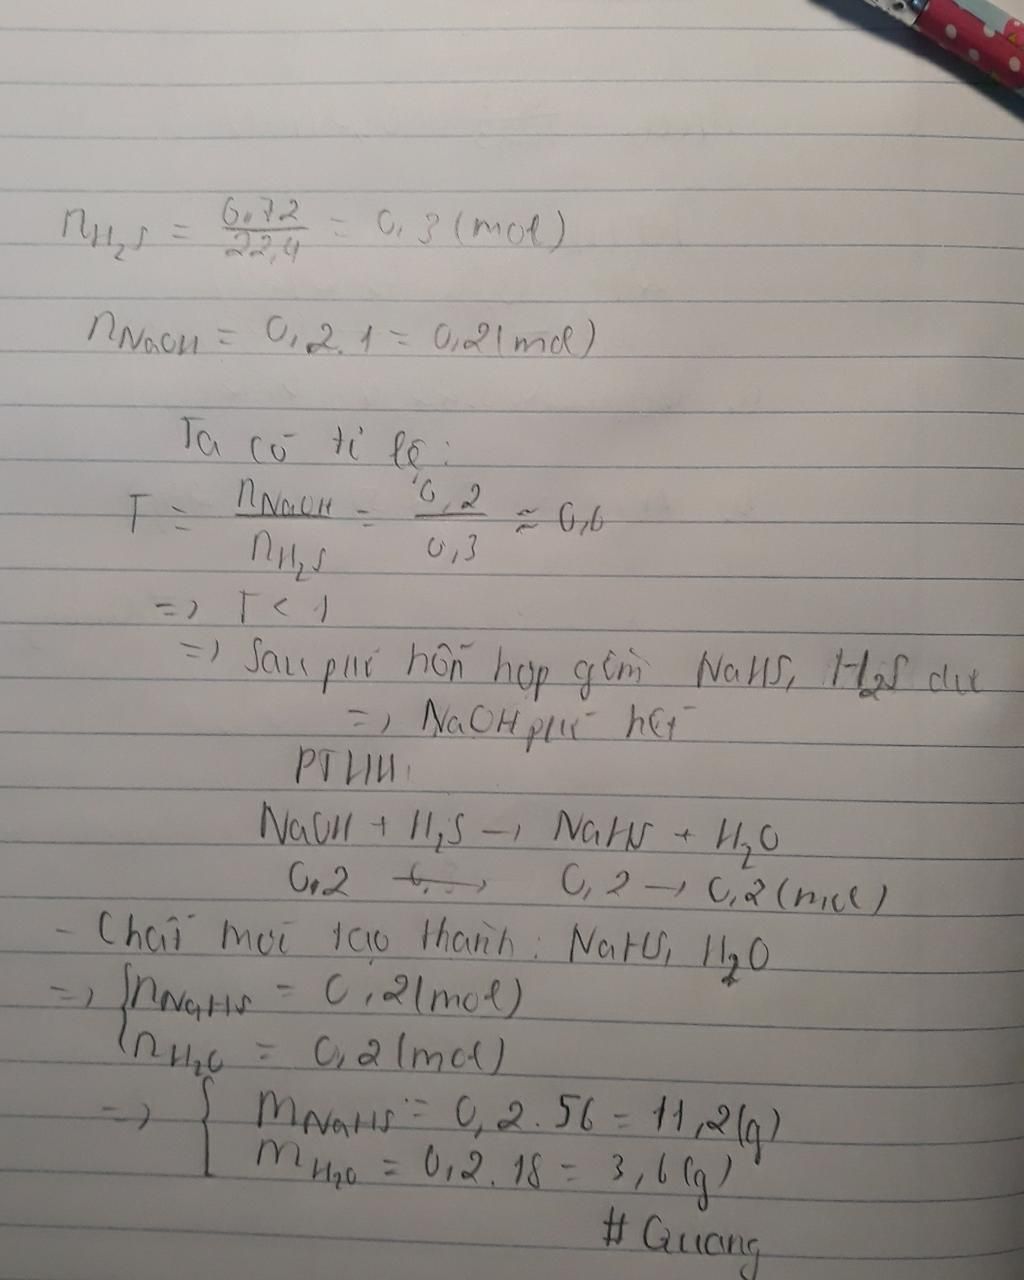 nH₂S = 6,72/22,4 = 0,3 (mol)
nNaOH = 0,2.1 = 0,2 (mol)
Ta có tỉ lệ:
T = nNaOH/nH₂S = 0,2/0,3 ≈ 0,6
=> T < 1
=> Sau pứ hỗn hợp gồm NaHS, H₂S dư
=> NaOH pứ hết
PTHH:
NaOH + H₂S → NaHS + H₂O
0,2 → 0,2 → 0,2 (mol)
- Chất mới tạo thành: NaHS, H₂O
=> { nNaHS = 0,2 (mol)
nH₂O = 0,2 (mol)
=> { mNaHS = 0,2.56 = 11,2 (g)
mH₂O = 0,2.18 = 3,6 (g)
# Quang